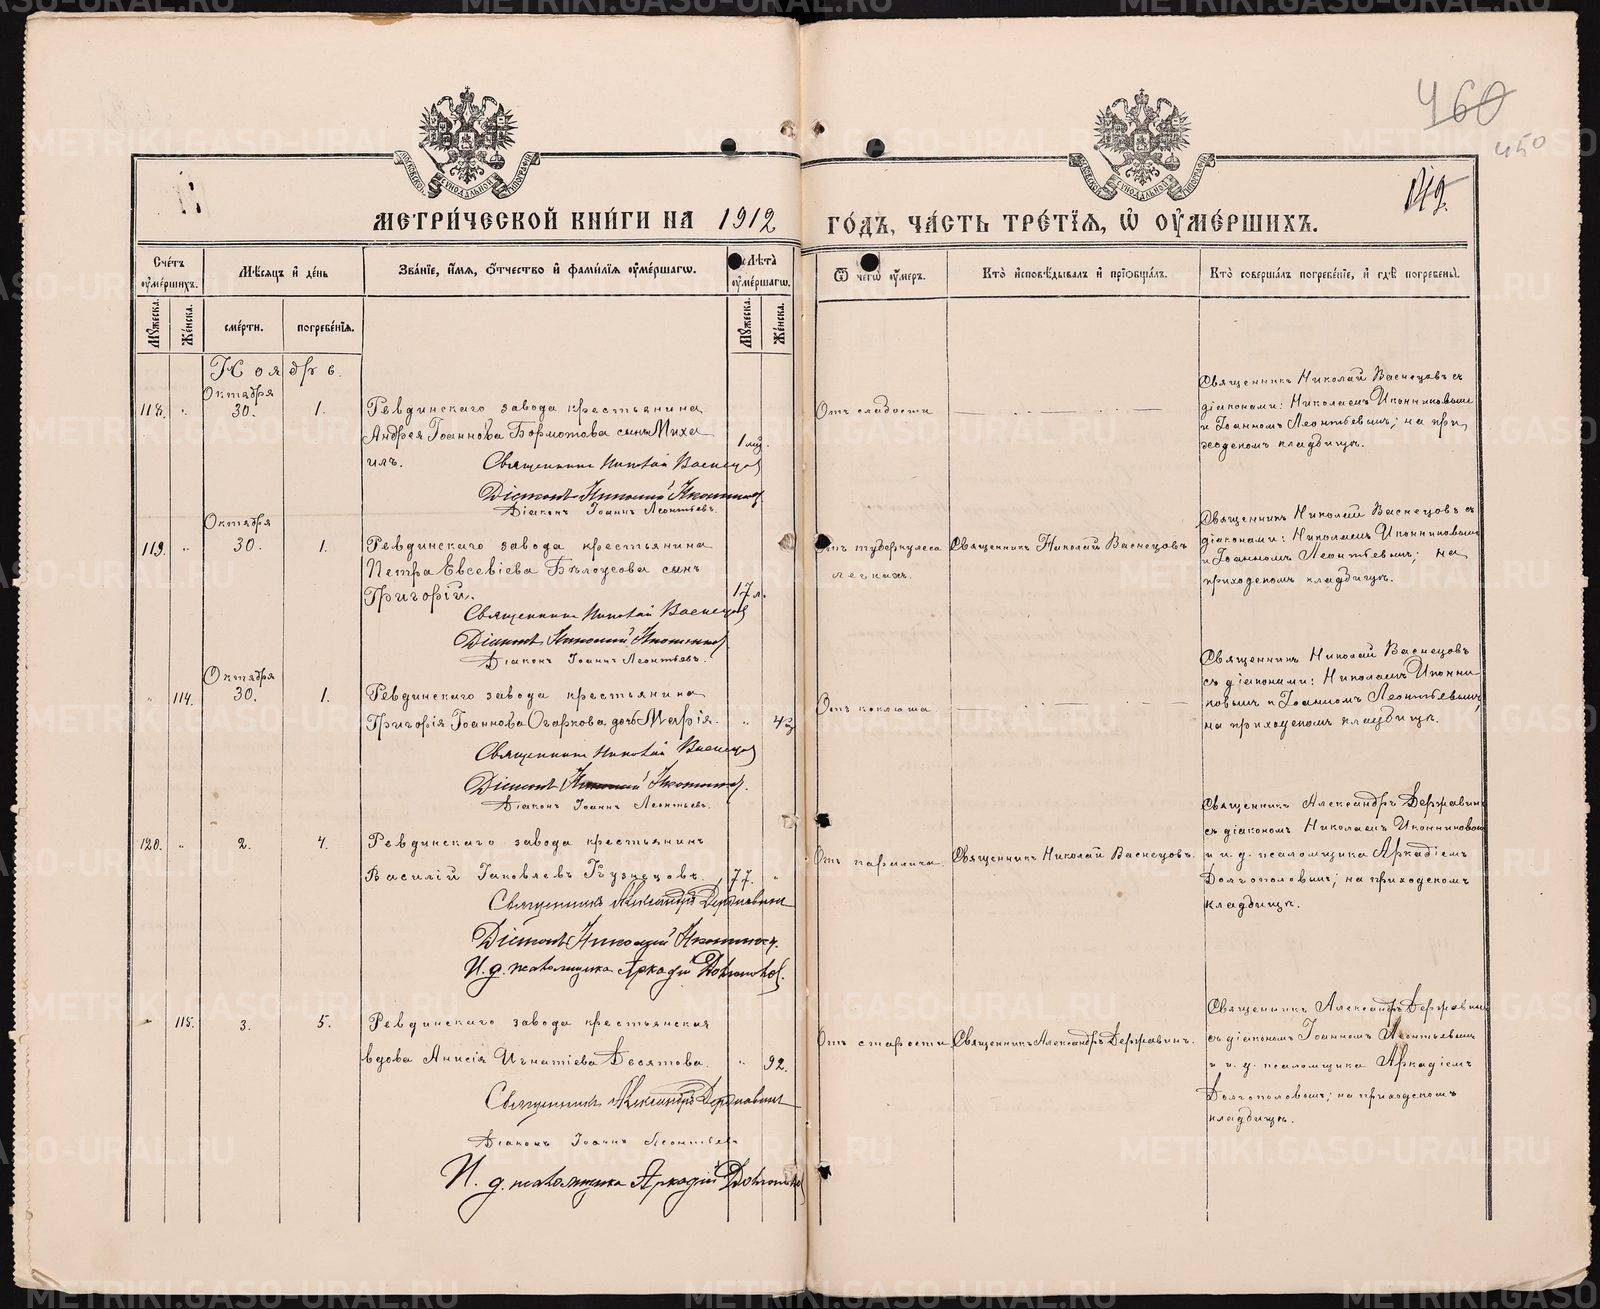 460
450
МЕТРИ́ЧЕСКОЙ КНИ́ГИ НА 1912 ГО́ДЪ, ЧА́СТЬ ТРЕ́ТЇѦ, Ѽ ОУ҆МЕ́РШИХЪ.
Счетъ оумершихъ.
Мѣсяцъ и день
Званіе, имя, отчество и фамилія оумершагѡ.
Лѣта оумершагѡ.
Ѿ чегѡ оумеръ.
Кто исповѣдывалъ и пріобщалъ.
Кто совершалъ погребеніе, и гдѣ погребены.
Мужеска.
Женска.
смерти.
погребенія.
Мужеска.
Женска.
Ноябрь.
118. " Октября 30. 1.
Ревдинскаго завода крестьянина
Андрея Іоаннова Бормотова сынъ Миха
илъ.
1 мѣс.
Отъ слабости
Священникъ Николай Васнецовъ съ
діаконами: Николаемъ Иконниковымъ
и Іоанномъ Леонтьевымъ; на при
ходскомъ кладбищѣ.
Священникъ Николай Васнецов
Діаконъ Николай Иконников
Діаконъ Іоаннъ Леонтьевъ.
119. " Октября 30. 1.
Ревдинскаго завода крестьянина
Петра Евсевіева Бѣлоусова сынъ
Григорій.
17 л.
Отъ туберкулеса
легкихъ.
Священникъ Николай Васнецовъ
Священникъ Николай Васнецовъ съ
діаконами: Николаемъ Иконниковымъ
и Іоанномъ Леонтьевымъ; на
приходскомъ кладбищѣ.
Священникъ Николай Васнецов
Діаконъ Николай Иконников
Діаконъ Іоаннъ Леонтьевъ.
" 114. Октября 30. 1.
Ревдинскаго завода крестьянина
Григорія Іоаннова Огаркова дочь Марія.
" 4
Отъ коклюша
Священникъ Николай Васнецовъ
съ діаконами: Николаемъ Иконни
ковымъ и Іоанномъ Леонтьевымъ,
на приходскомъ кладбищѣ.
Священникъ Николай Васнецов
Діаконъ Николай Иконников.
Діаконъ Іоаннъ Леонтьевъ.
120. " 2. 4.
Ревдинскаго завода крестьянинъ
Василій Іаковлевъ Кузнецовъ.
77. "
Отъ паралича
Священникъ Николай Васнецовъ.
Священникъ Александръ Державинъ
съ діакономъ Николаемъ Иконниковымъ
и и. д. псаломщика Аркадіемъ
Долгополовымъ; на приходскомъ
кладбищѣ.
Священникъ Александръ Державинъ
Діаконъ Николай Иконников.
И. д. псаломщика Аркадій Долгополов.
" 115. 3. 5.
Ревдинскаго завода крестьянская
вдова Анисія Игнатіева Десятова.
" 92.
Отъ старости
Священникъ Александръ Державинъ.
Священникъ Александръ Державинъ
съ діакономъ Іоанномъ Леонтьевымъ
и и. д. псаломщика Аркадіемъ
Долгополовымъ; на приходскомъ
кладбищѣ.
Священникъ Александръ Державинъ
Діаконъ Іоаннъ Леонтьевъ
И. д. псаломщика Аркадій Долгополов
METRIKI.GASO-URAL.RU